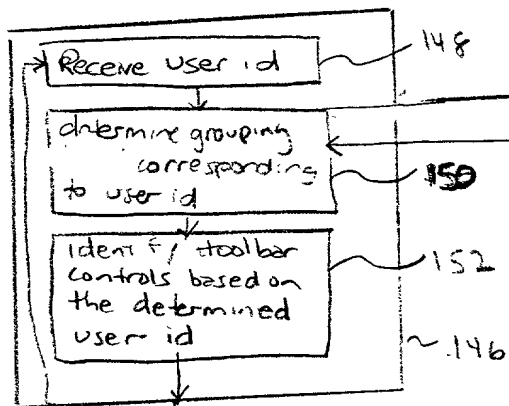 Receive user id
148
determine grouping
corresponding
to user id
150
Identify toolbar
controls based on
the determined
user id
152
146